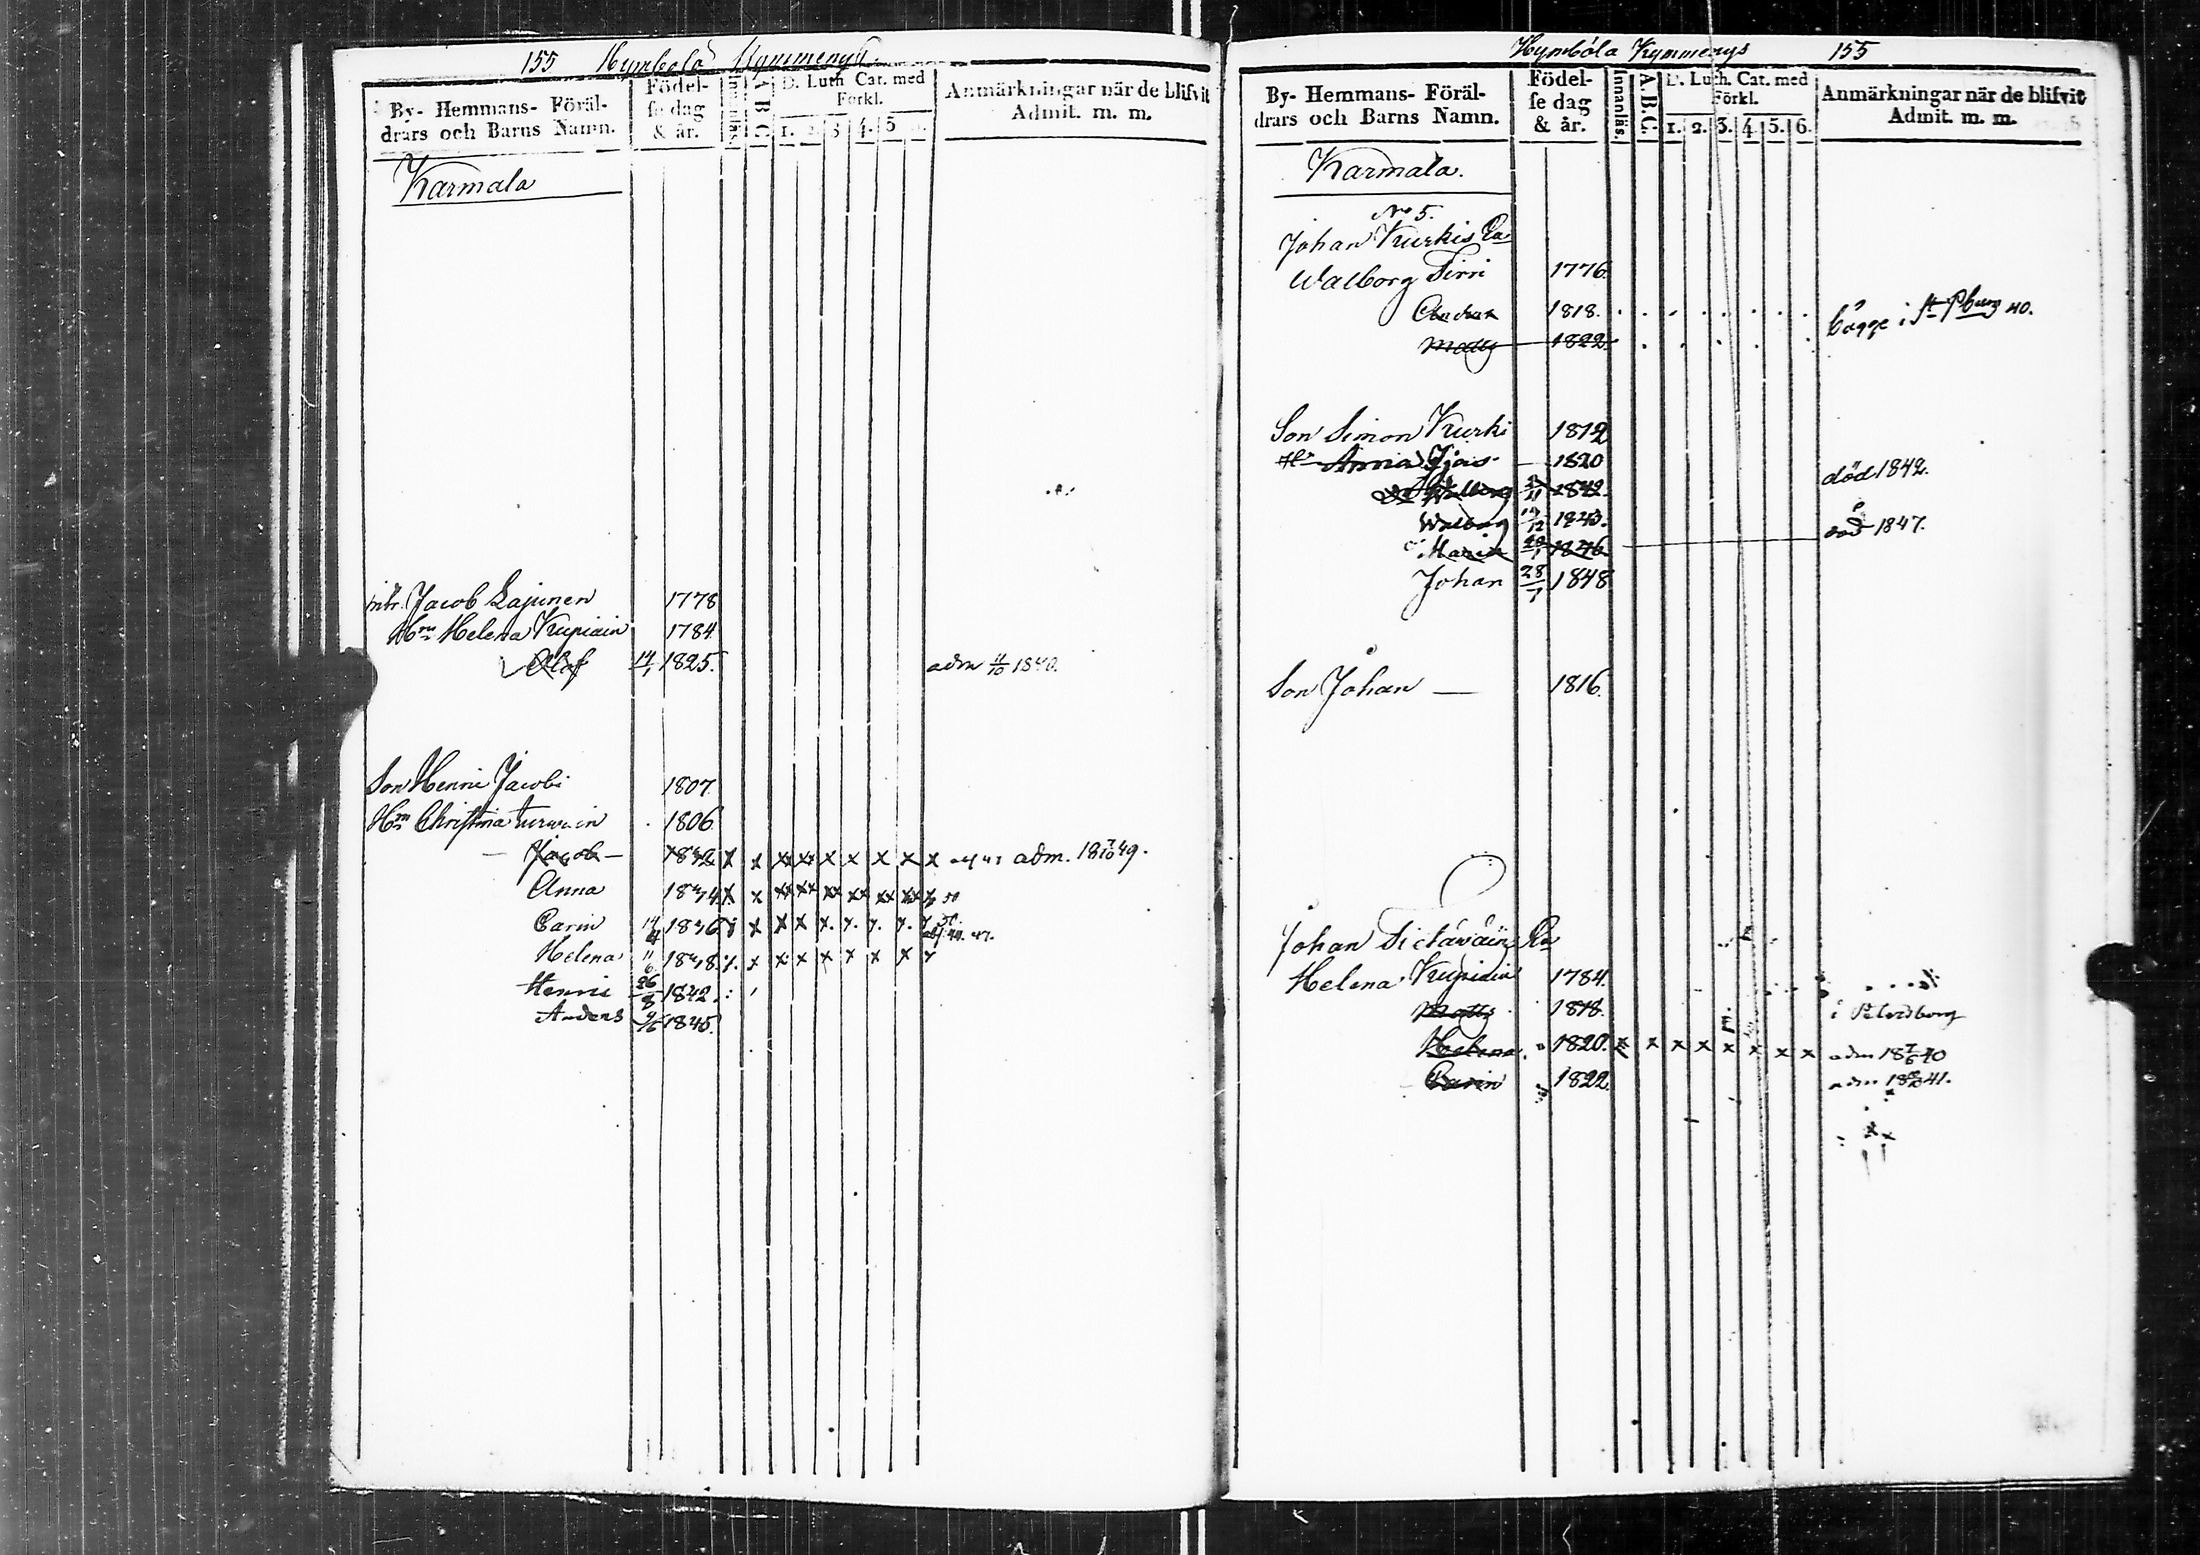 155 Hymbola Kymmenys
By- Hemmans- Föräldrars och Barns Namn.
Födelse dag & år.
Innanläs.
A B C
D. Luth. Cat. med Förkl.
1. 2. 3 4. 5
Anmärkningar när de blifvit Admit. m. m.
Karmala
Jacob Lajunen 1778
Helena Kupiain 1784
Olof 1825. adm 11/10 1840.
Son Henric Jacobi 1807
Hru Christina 1806
Jacob 1832 x x xx xx x x x x x adm. 18 7/10 49.
Anna 1834 x x xx xx xx xx xx xx x 50
Carin 1836 x x x
Helena 11/6 1838 x x x x x x x x
Henric 26/8 1842
Anders 1845.
Hymbola Kymmenys 155
By- Hemmans- Föräldrars och Barns Namn.
Födelse dag & år.
Innanläs.
A.B.C.
D. Luth. Cat. med Förkl.
1. 2. 3. 4. 5. 6.
Anmärkningar när de blifvit Admit. m. m.
Karmala.
No 5.
Johan Kurkis Ea
Walborg Tirri 1776
1818. bägge i St Pburg 40.
Matts 1822
Son Simon Kurki 1812
Anna 1820
Walborg 1842. död 1842.
Walborg 1843.
Maria 1846 död 1847.
Johan 28/7 1848
Son Johan — 1816.
Johan Ea
Helena Kupiain 1784.
Matts 1818. i Petersborg
Helena 1820. x x x x x x x x adm 18 7/6 40
Carin 1822 adm 18 41.